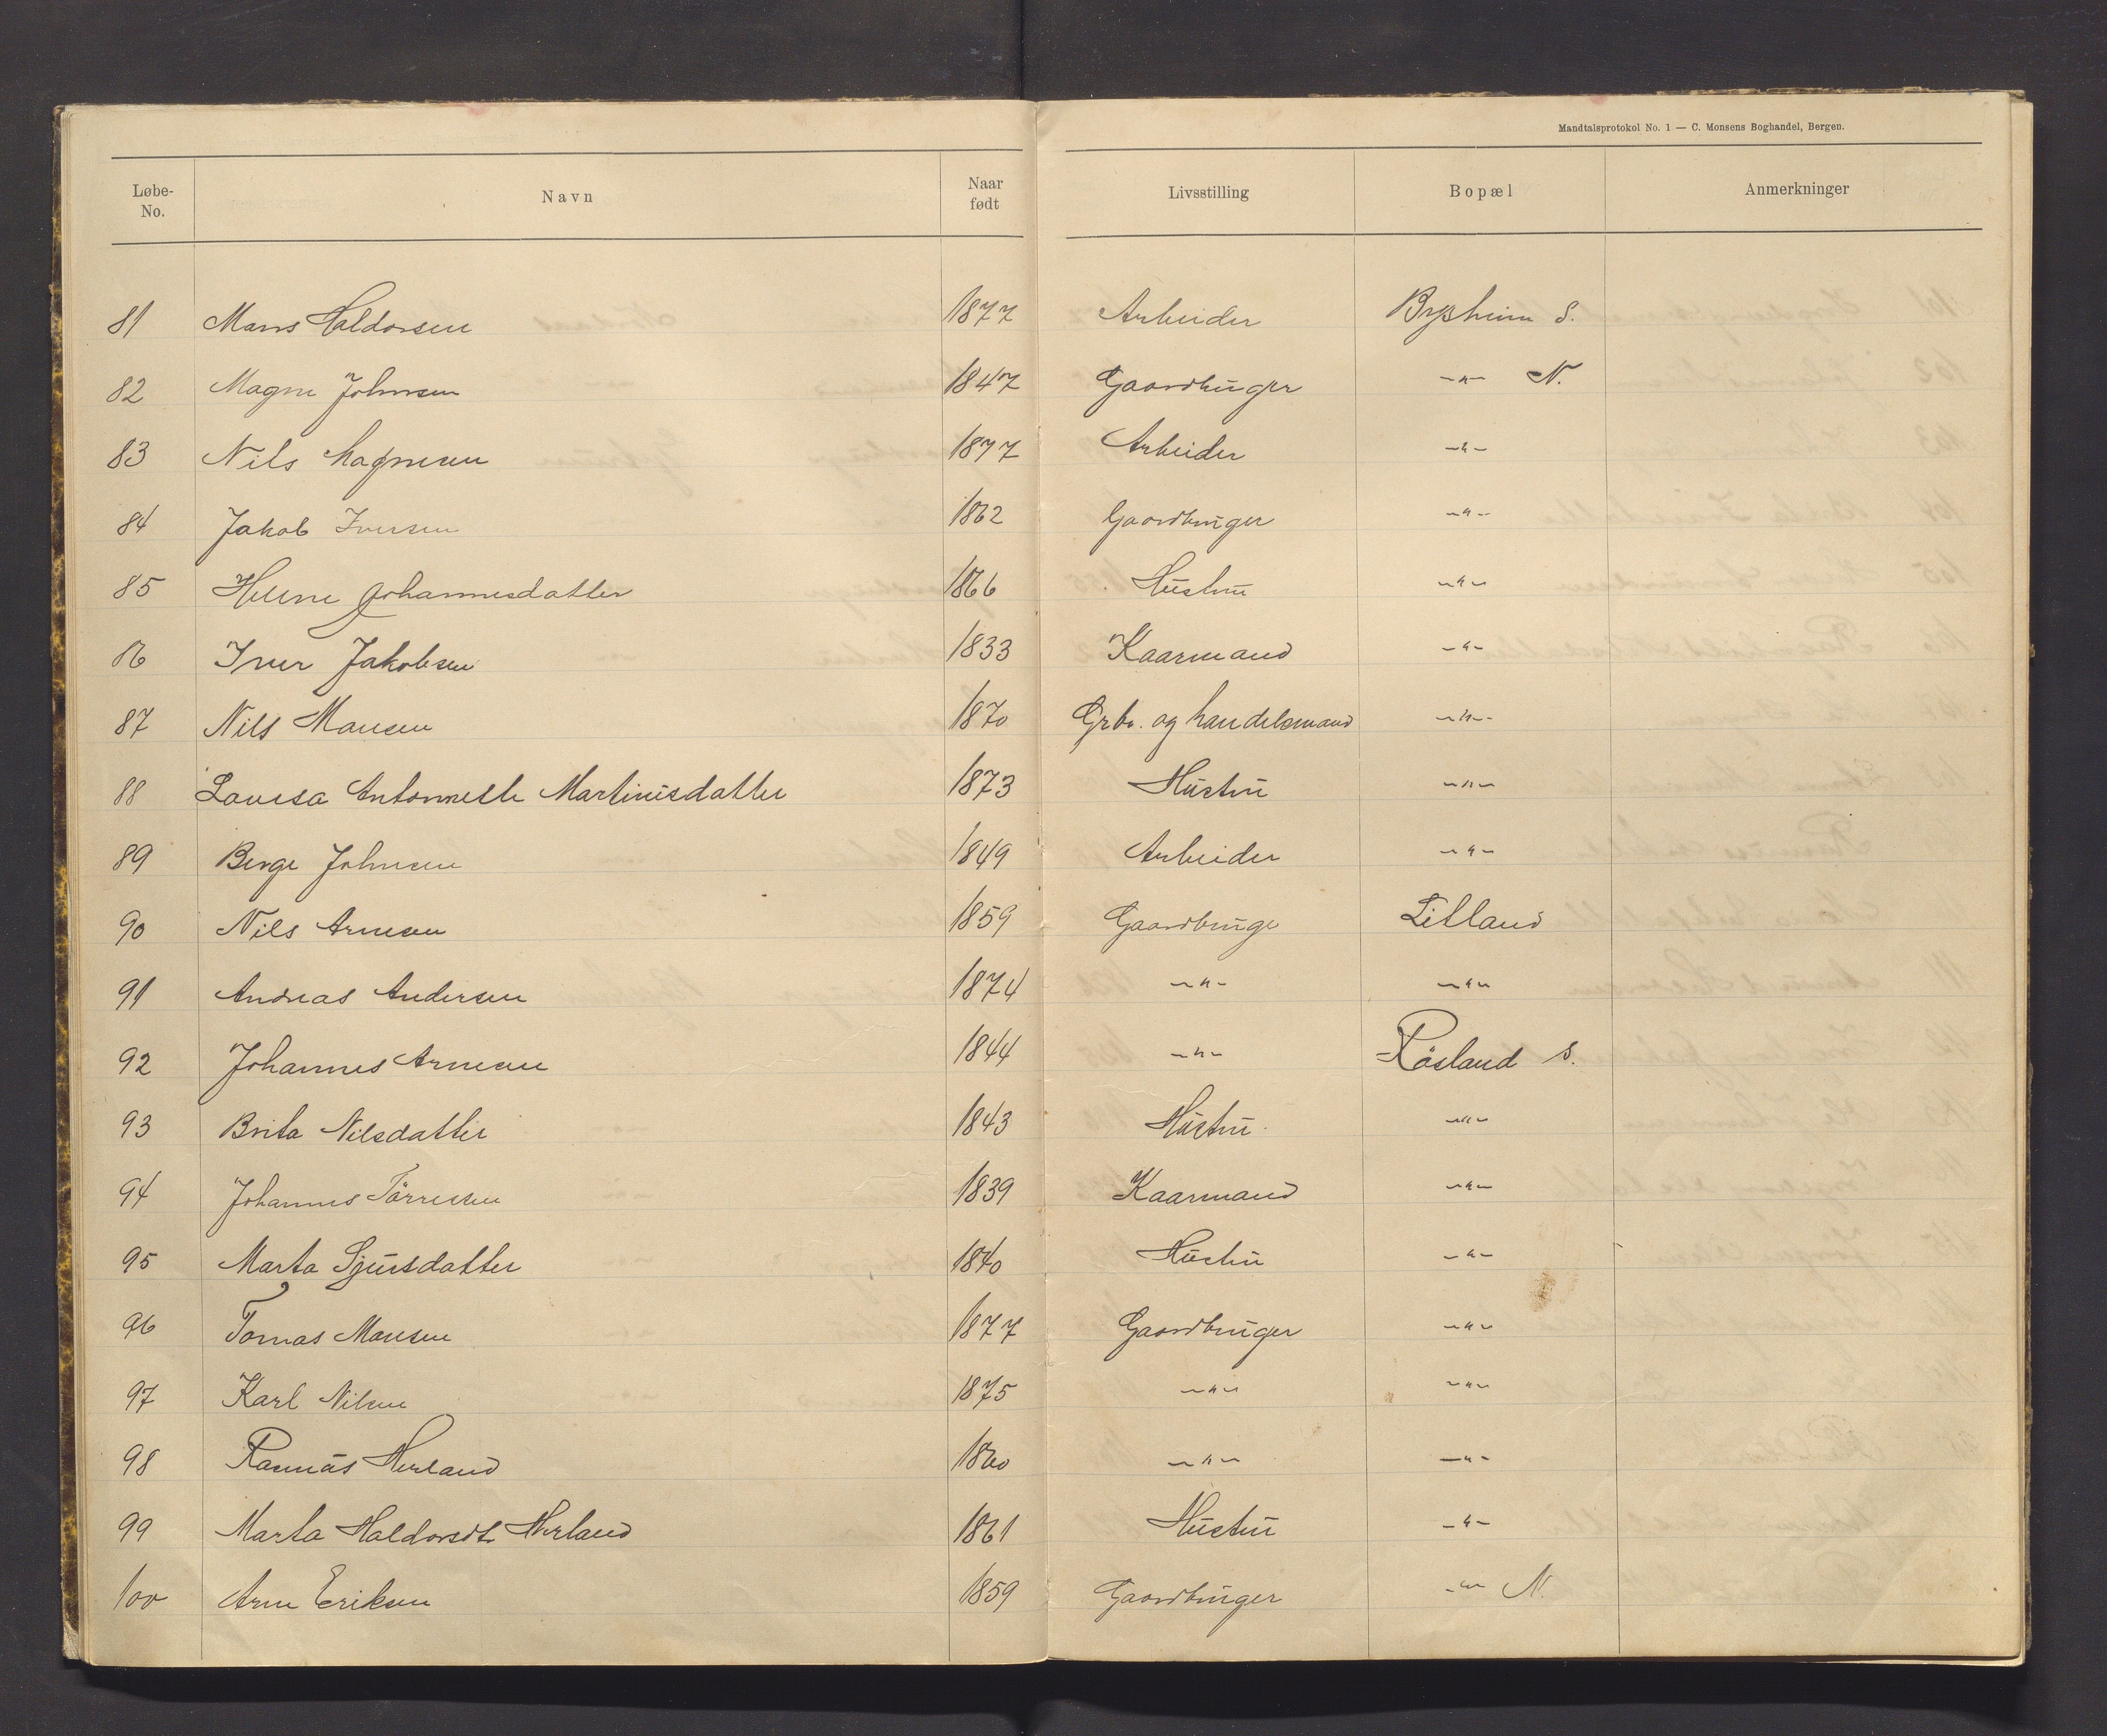 Mandtalsprotokol No. 1 — C. Monsens Boghandel, Bergen.
Løbe-No. Navn Naar født Livsstilling Bopæl Anmerkninger
81 Mans Haldorsen 1877 Arbeider Brysheim S.
82 Magne Johnsen 1847 Gaardbruger -"- N.
83 Nils Magnesen 1877 Arbeider -"-
84 Jakob Iversen 1862 Gaardbruger -"-
85 Helene Johannesdatter 1866 Hustru -"-
86 Iver Jakobsen 1833 Kaarmand -"-
87 Nils Mansen 1870 Grbr. og handelsmand -"-
88 Lovisa Antonnette Martinisdatter 1873 Hustru -"-
89 Berge Johnsen 1849 Arbeider -"-
90 Nils Arnesen 1859 Gaardbruge Litland
91 Andreas Andersen 1874 -"- -"-
92 Johannes Arnesen 1844 -"- Røsland S.
93 Brita Nilsdatter 1843 Hustru -"-
94 Johannes Tørresen 1839 Kaarmand -"-
95 Marta Sjursdatter 1840 Hustru -"-
96 Tomas Monsen 1877 Gaardbruger -"-
97 Karl Nilsen 1875 -"- -"-
98 Rasmus Herland 1860 -"- -"-
99 Marta Haldorsdtr Herland 1861 Hustru -"-
100 Arne Eriksen 1859 Gaardbruger -"- N.